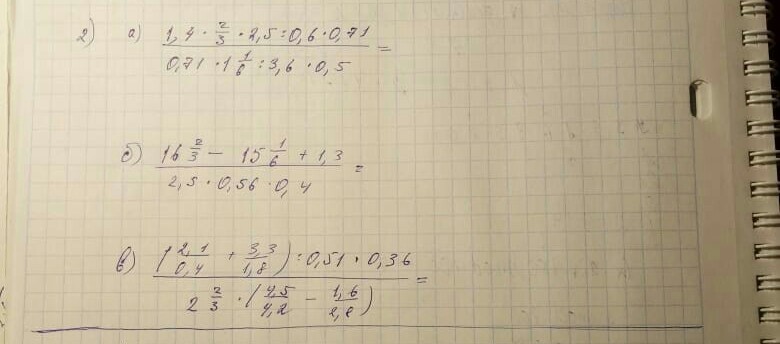 2) а) 1,4 · 2/3 · 2,5 : 0,6 · 0,71
0,71 · 1 1/6 : 3,6 · 0,5 =
б) 16 2/3 - 15 1/6 + 1,3
2,5 · 0,56 · 0,4 =
в) (2,1/0,4 + 3,3/1,8) : 0,51 · 0,36
2 2/3 · (4,5/4,2 - 1,6/2,2) =